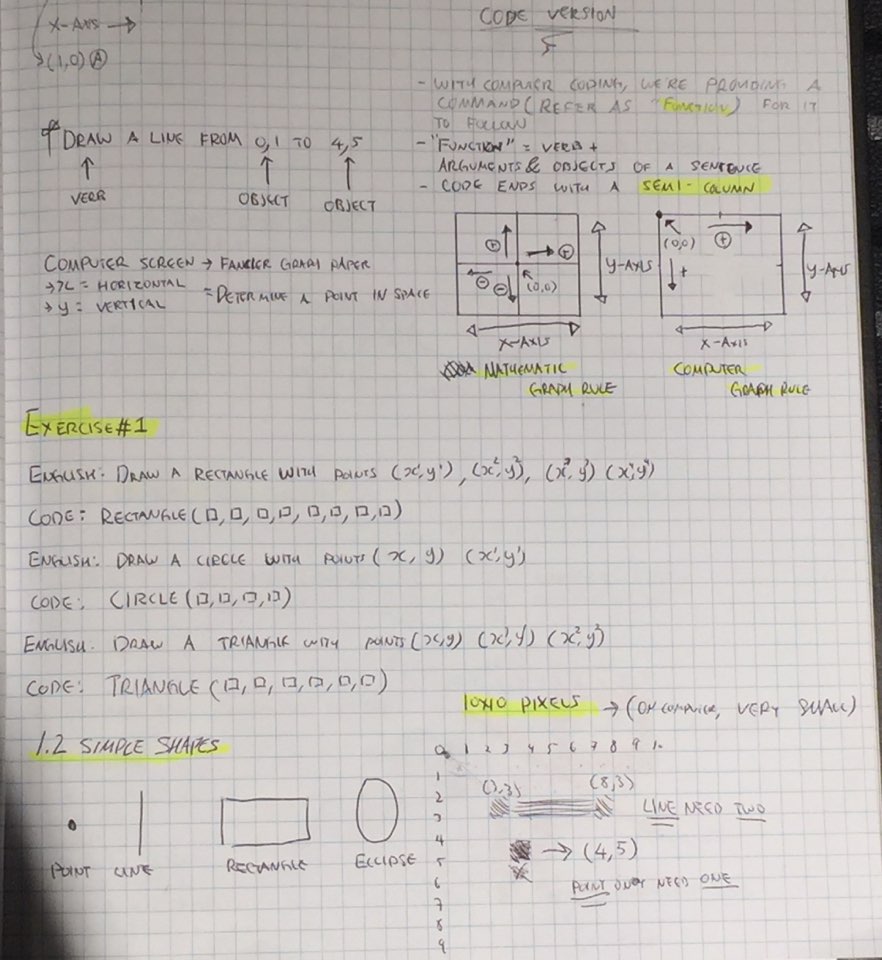 X-AXIS →
(1,0) A
CODE VERSION
- WITH COMPUTER CODING, WE'RE PROVIDING A
COMMAND (REFER AS "FUNCTION") FOR IT
TO FOLLOW
- "FUNCTION" = VERB +
ARGUMENTS & OBJECTS OF A SENTENCE
- CODE ENDS WITH A SEMI-COLUMN
DRAW A LINE FROM 0,1 TO 4,5
VERB
OBJECT
OBJECT
COMPUTER SCREEN → FANCIER GRAPH PAPER
→ x = HORIZONTAL
→ y = VERTICAL
= DETERMINE A POINT IN SPACE
+
→ +
- -
(0,0)
Y-AXIS
X-AXIS
MATHEMATIC
GRAPH RULE
(0,0)
+
+
Y-AXIS
X-AXIS
COMPUTER
GRAPH RULE
EXERCISE #1
ENGLISH: DRAW A RECTANGLE WITH POINTS (x¹,y¹), (x²,y²), (x³,y³) (x⁴,y⁴)
CODE: RECTANGLE (□, □, □, □, □, □, □, □)
ENGLISH: DRAW A CIRCLE WITH POINTS (x, y) (x¹,y¹)
CODE: CIRCLE (□, □, □, □)
ENGLISH: DRAW A TRIANGLE WITH POINTS (x,y) (x¹,y¹) (x²,y²)
CODE: TRIANGLE (□, □, □, □, □, □)
10X10 PIXELS → (ON COMPUTER, VERY SMALL)
1.2 SIMPLE SHAPES
POINT
LINE
RECTANGLE
ECLIPSE
0 1 2 3 4 5 6 7 8 9 10
1
2
3
4
5
6
7
8
9
(8,3)
LINE NEED TWO
→ (4,5)
POINT ONLY NEED ONE